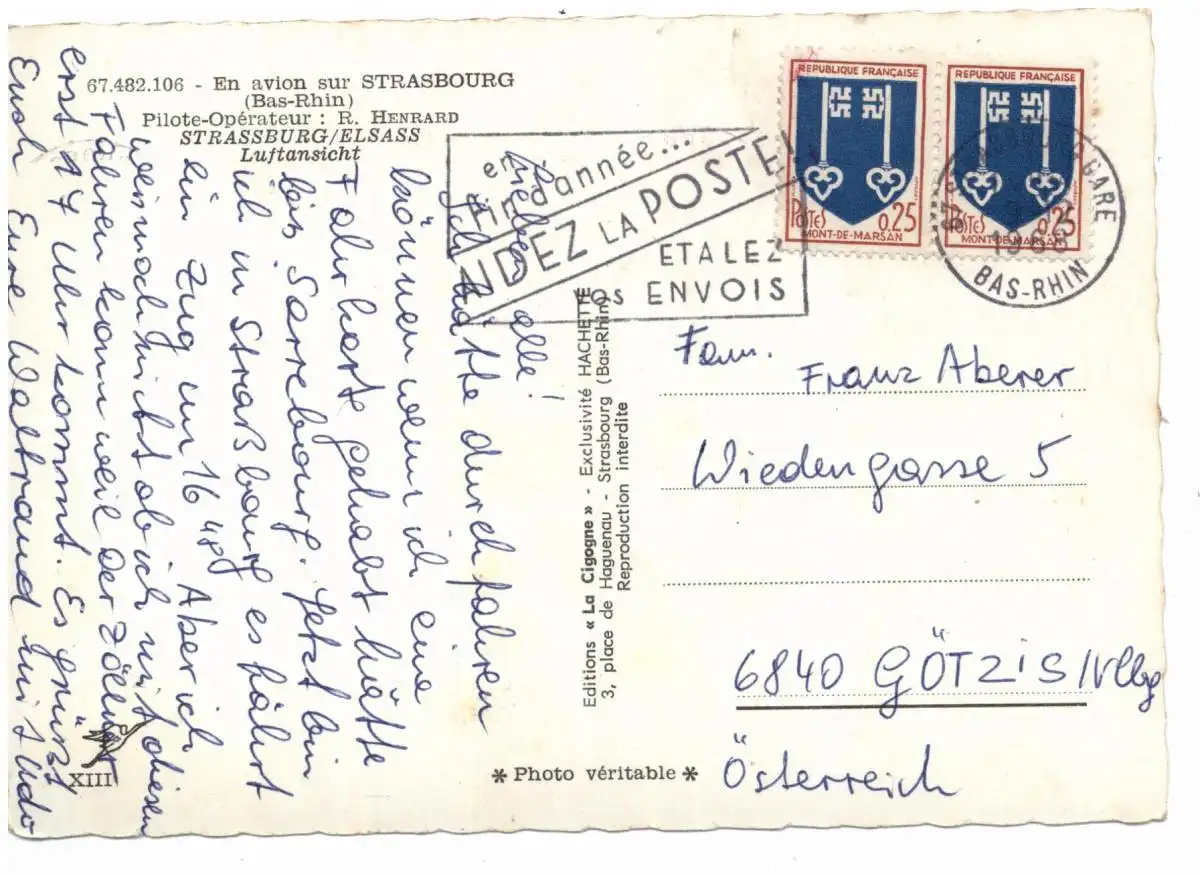 67.482.106 - En avion sur STRASBOURG
(Bas-Rhin)
Pilote-Opérateur : R. HENRARD
STRASSBURG/ELSASS
Luftansicht
en
fin d'année...
AIDEZ LA POSTE!
ETALEZ
vos ENVOIS
REPUBLIQUE FRANÇAISE
POSTES 0,25
MONT-DE-MARSAN
REPUBLIQUE FRANÇAISE
POSTES 0,25
MONT-DE-MARSAN
GARE
BAS-RHIN
Lieben alle!
Ich hätte durchfahren
können wenn ich eine
Fahrkarte gehabt hätte
bis Sarrebourg. Jetzt bin
ich in Straßbourg es fährt
ein Zug um 16 48 Aber ich
weis noch nicht ob ich mit diesen
Fahren kann weil der Zöllner
erst 17 Uhr kommt. Es grüßt
Euch Eure Waltraud mit Udo
Editions « La Cigogne » - Exclusivité HACHETTE
3, place de Haguenau - Strasbourg (Bas-Rhin)
Reproduction interdite
Fam.
Franz Aberer
Wiedengasse 5
6840 GÖTZIS/Vlbg
Österreich
XIII
* Photo véritable *